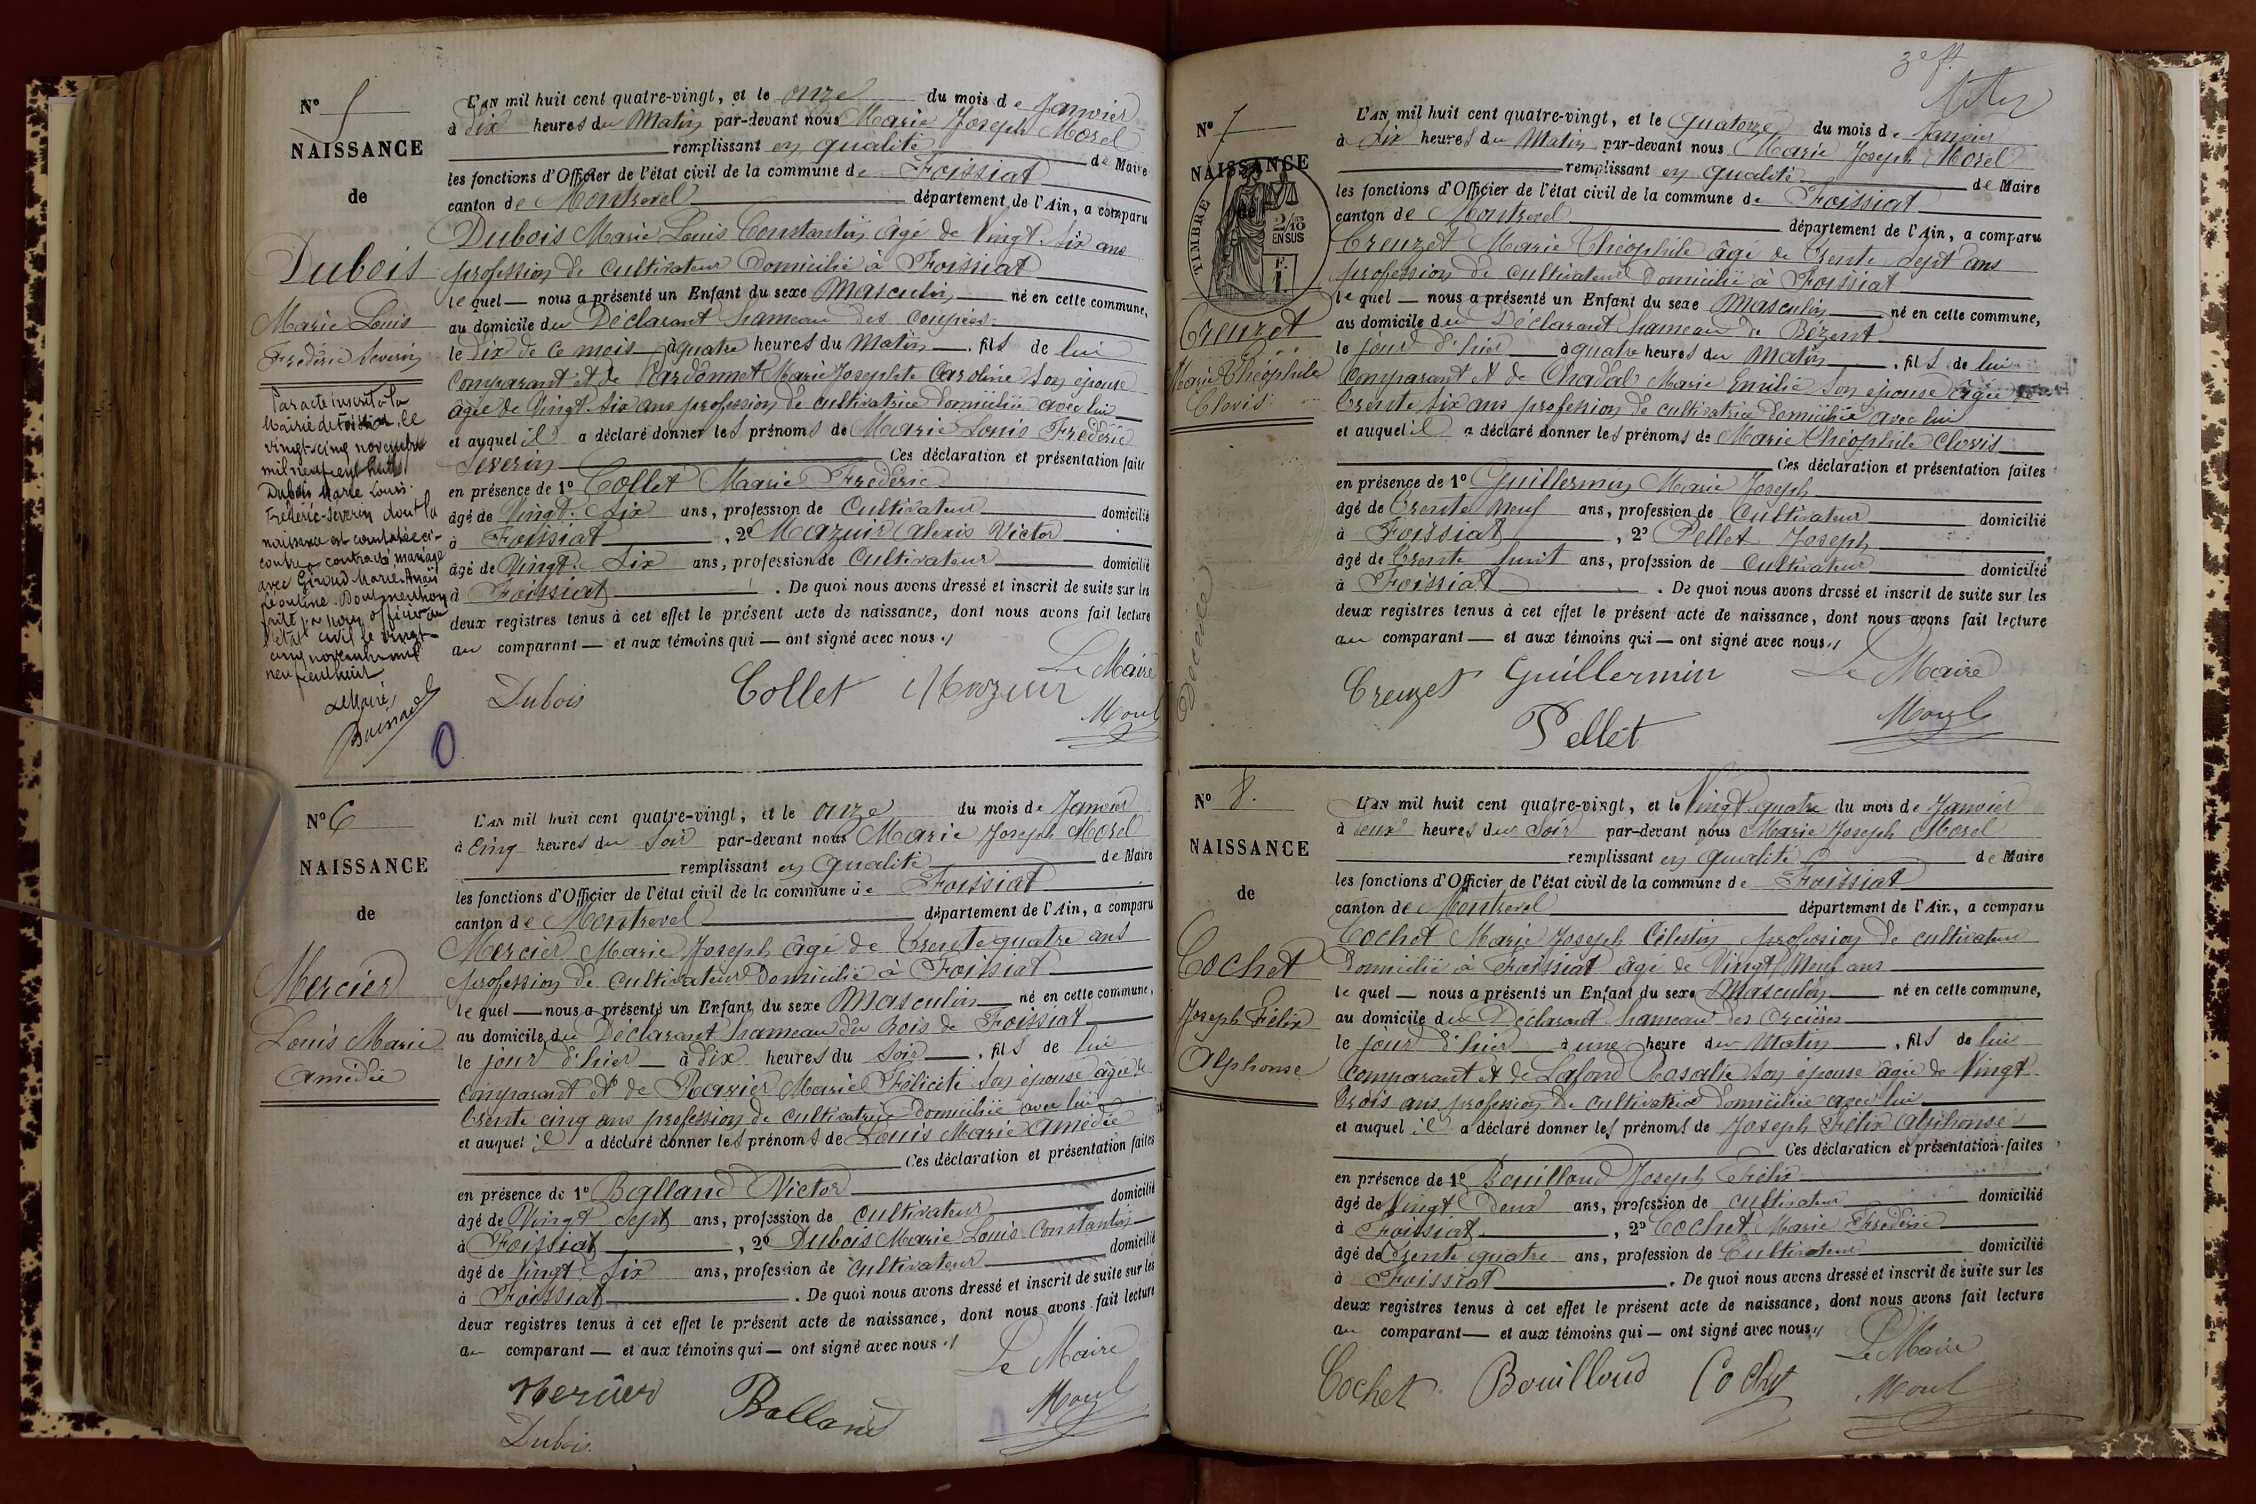 N° 5
NAISSANCE
de
Dubois
Marie Louis
Frédéric Severin
Par acte inscrit à la
Mairie de Foissiat, le
vingt-cinq novembre
mil neuf cent huit
Dubois Marie Louis
Frédéric-Severin dont la
naissance est constatée ci-
contre a contracté mariage
avec Giroud Marie-Anaïs
Léontine. Dont mention
faite par nous officier de
l'état civil le vingt-
cinq novembre mil
neuf cent huit
Le Maire,
L'AN mil huit cent quatre-vingt, et le onze du mois de Janvier
à dix heures du Matin par-devant nous Marie Joseph Morel
remplissant en qualité de Maire
les fonctions d'Officier de l'état civil de la commune de Foissiat
canton de Montrevel département de l'Ain, a comparu
Dubois Marie Louis Constantin âgé de Vingt-six ans
profession de cultivateur domicilié à Foissiat
lequel — nous a présenté un Enfant du sexe Masculin né en cette commune,
au domicile du Déclarant hameau des coupées
le dix de ce mois à quatre heures du Matin, fils de lui
Comparant et de Cardonnet Marie Josephte Caroline son épouse
âgée de Vingt-six ans profession de cultivatrice domiciliée avec lui
et auquel il a déclaré donner les prénoms de Marie Louis Frédéric
Severin Ces déclaration et présentation faites
en présence de 1° Collet Marie Frédéric
âgé de Vingt-six ans, profession de Cultivateur domicilié
à Foissiat, 2° Mazuir Alexis Victor
âgé de Vingt-six ans, profession de Cultivateur domicilié
à Foissiat. De quoi nous avons dressé et inscrit de suite sur les
deux registres tenus à cet effet le présent acte de naissance, dont nous avons fait lecture
au comparant — et aux témoins qui — ont signé avec nous
Le Maire
Dubois Collet Mazuir
Morel
N° 6
NAISSANCE
de
Mercier
Louis Marie
Amédée
L'AN mil huit cent quatre-vingt, et le onze du mois de Janvier
à cinq heures du soir par-devant nous Marie Joseph Morel
remplissant en qualité de Maire
les fonctions d'Officier de l'état civil de la commune de Foissiat
canton de Montrevel département de l'Ain, a comparu
Mercier Marie Joseph âgé de Trente quatre ans
profession de cultivateur domicilié à Foissiat
lequel — nous a présenté un Enfant du sexe Masculin né en cette commune,
au domicile du Déclarant hameau du Bois de Foissiat
le jour d'hier à dix heures du soir, fils de lui
Comparant et de Marie Félicité son épouse âgée de
Trente cinq ans profession de cultivatrice domiciliée avec lui
et auquel il a déclaré donner les prénoms de Louis Marie Amédée
Ces déclaration et présentation faites
en présence de 1° Balland Victor
âgé de Vingt sept ans, profession de cultivateur domicilié
à Foissiat, 2° Dubois Marie Louis Constantin
âgé de Vingt-six ans, profession de cultivateur domicilié
à Foissiat. De quoi nous avons dressé et inscrit de suite sur les
deux registres tenus à cet effet le présent acte de naissance, dont nous avons fait lecture
au comparant — et aux témoins qui — ont signé avec nous
Le Maire
Mercier Balland Morel
Dubois
3e ft.
N° 7
NAISSANCE
de
TIMBRE
2/10
EN SUS
F. 1.
Creuzet
Marie Théophile
Clovis
L'AN mil huit cent quatre-vingt, et le quatorze du mois de Janvier
à dix heures du Matin par-devant nous Marie Joseph Morel
remplissant en qualité de Maire
les fonctions d'Officier de l'état civil de la commune de Foissiat
canton de Montrevel département de l'Ain, a comparu
Creuzet Marie Théophile âgé de Trente sept ans
profession de cultivateur domicilié à Foissiat
lequel — nous a présenté un Enfant du sexe Masculin né en cette commune,
au domicile du Déclarant hameau de Bézent
le jour d'hier à quatre heures du Matin, fils de lui
Comparant et de Chadal Marie Emilie son épouse âgée de
Trente six ans profession de cultivatrice domiciliée avec lui
et auquel il a déclaré donner les prénoms de Marie Théophile Clovis
Ces déclaration et présentation faites
en présence de 1° Guillermin Marie Joseph
âgé de Trente Neuf ans, profession de Cultivateur domicilié
à Foissiat, 2° Pellet Joseph
âgé de Trente huit ans, profession de Cultivateur domicilié
à Foissiat. De quoi nous avons dressé et inscrit de suite sur les
deux registres tenus à cet effet le présent acte de naissance, dont nous avons fait lecture
au comparant — et aux témoins qui — ont signé avec nous
Creuzet Guillermin Le Maire
Pellet Morel
N° 8.
NAISSANCE
de
Cochet
Joseph Félix
Alphonse
L'AN mil huit cent quatre-vingt, et le Vingt quatre du mois de Janvier
à deux heures du soir par-devant nous Marie Joseph Morel
remplissant en qualité de Maire
les fonctions d'Officier de l'état civil de la commune de Foissiat
canton de Montrevel département de l'Ain, a comparu
Cochet Marie Joseph Célestin profession de cultivateur
domicilié à Foissiat âgé de Vingt Neuf ans
lequel — nous a présenté un Enfant du sexe Masculin né en cette commune,
au domicile du Déclarant hameau des Orcières
le jour d'hier à une heure du Matin, fils de lui
Comparant et de Lafond Rosalie son épouse âgée de Vingt
Trois ans profession de cultivatrice domiciliée avec lui
et auquel il a déclaré donner les prénoms de Joseph Félix Alphonse
Ces déclaration et présentation faites
en présence de 1° Bouilloud Joseph Félix
âgé de Vingt Deux ans, profession de cultivateur domicilié
à Foissiat, 2° Cochet Marie Frédéric
âgé de Trente quatre ans, profession de Cultivateur domicilié
à Foissiat. De quoi nous avons dressé et inscrit de suite sur les
deux registres tenus à cet effet le présent acte de naissance, dont nous avons fait lecture
au comparant — et aux témoins qui — ont signé avec nous
Le Maire
Cochet Bouilloud Cochet Morel